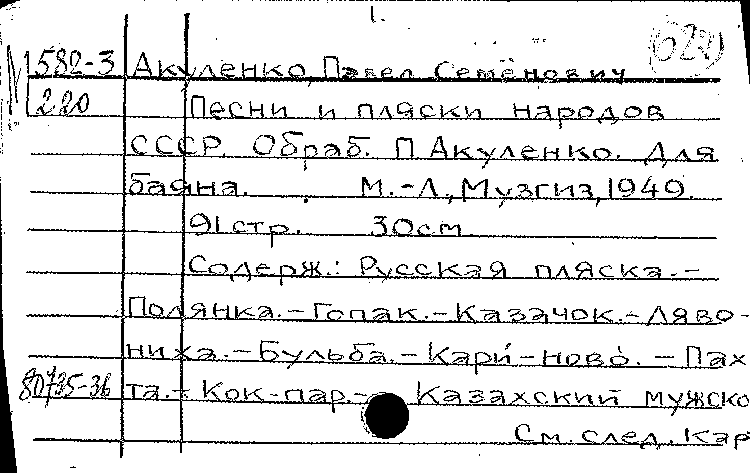 1.
1582-3 Акуленко, Павел Семёнович
220 Песни и пляски народов
СССР. Обраб. П Акуленко. Для
баяна. М.-Л., Музгиз, 1949.
91 стр. 30см
Содерж.: Русская пляска.-
Полянка.-Гопак.-Казачок.-Ляво-
ниха.-Бульба.-Кари-ново.-Пах
80735-36 та.-Кок-пар.- Казахский мужско
См. след. кар